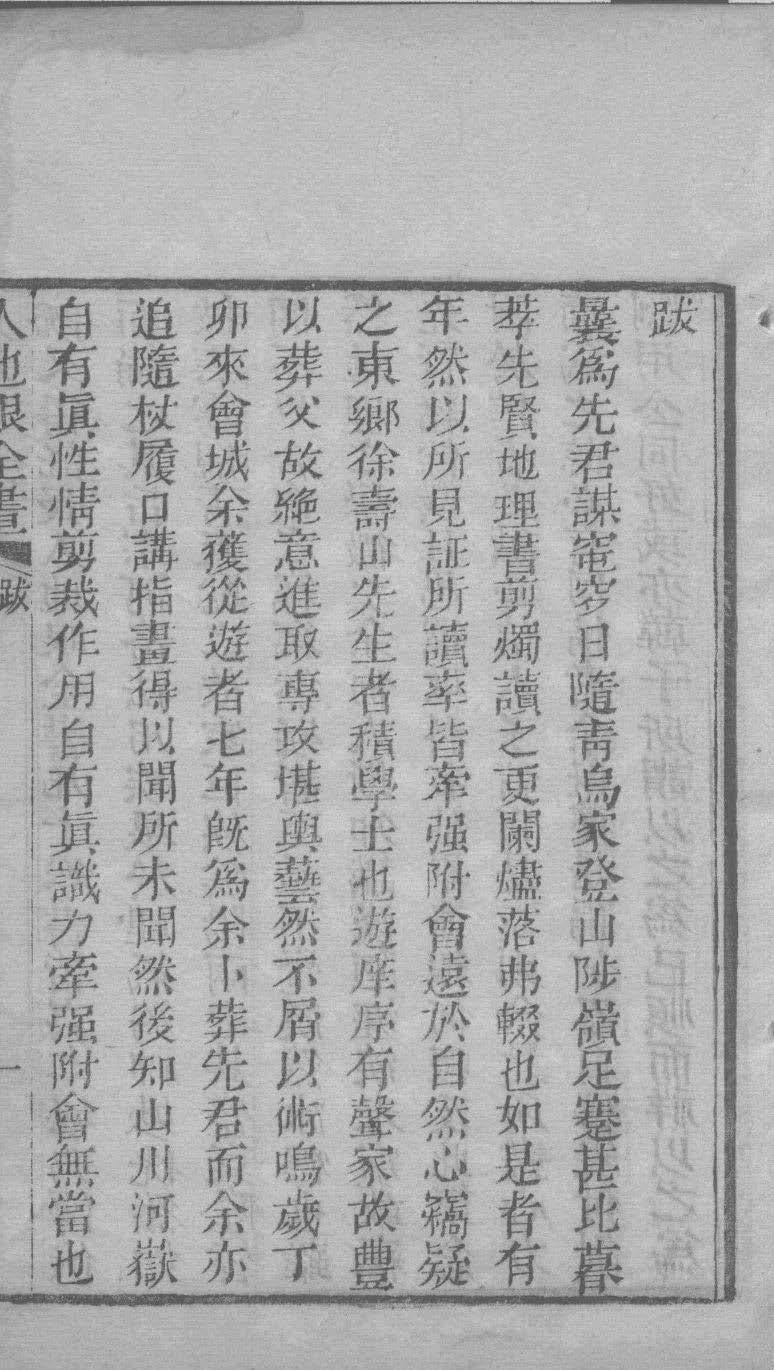 跋
曩爲先君謀窀穸日隨靑烏家登山陟嶺足蹇甚比暮
萃先賢地理書剪燭讀之更闌燼落弗輟也如是者有
年然以所見証所讀率皆牽强附會遠於自然心竊疑
之東鄉徐壽山先生者積學士也遊庠序有聲家故豐
以葬父故絶意進取專攻堪輿藝然不屑以術鳴歲丁
卯來會城余獲從遊者七年旣爲余卜葬先君而余亦
追隨杖履口講指畫得以聞所未聞然後知山川河嶽
自有眞性情剪裁作用自有眞識力牽强附會無當也
人地眼全書 跋 一